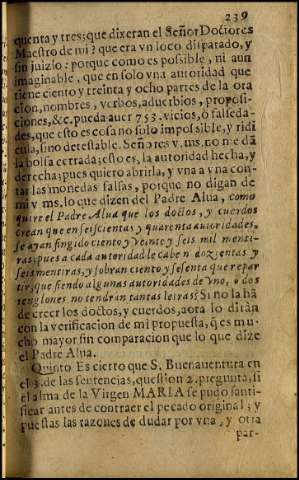 239
quenta y tres; que dixeran el Señor Doctores
Maestro de mi? que era vn loco disparado, y
sin juizio: porque como es possible, ni aun
imaginable, que en solo vna autoridad que
tiene ciento y treinta y ocho partes de la ora
cion, nombres, verbos, aduerbios, proposi-
ciones, &c. pueda auer 753. vicios, ò falseda-
des, que esto es cosa no solo impossible, y ridi
cula, sino detestable. Señores v. ms. no me dã
la bolsa cerrada; esto es, la autoridad hecha, y
derecha; pues quiero abrirla, y vna a vna con-
tar las monedas falsas, porque no digan de
mi v. ms. lo que dizen del Padre Alua, como
quire el Padre Alua que los doctos, y cuerdos
crean que en seiscientas y quarenta autoridades,
se ayan fingido ciento y veinte y seis mil menti-
ras; pues a cada autoridad le caben dozientas y
seis mentiras, y sobran ciento y sesenta que repar
tir, que siendo algunas autoridades de vno, ò dos
renglones no tendràn tantas letras? Si no la hã
de creer los doctos, y cuerdos, aora lo diràn
con la verificacion de mi propuesta, q̃ es mu-
cho mayor sin comparacion que lo que dize
el Padre Alua.
Quinto Es cierto que S. Buenauentura en
el 3. de las sentencias, question 2. pregunta, si
el alma de la Virgen MARIA se pudo santi-
ficar antes de contraer el pecado original; y
puestas las razones de dudar por vna, y otra
par-